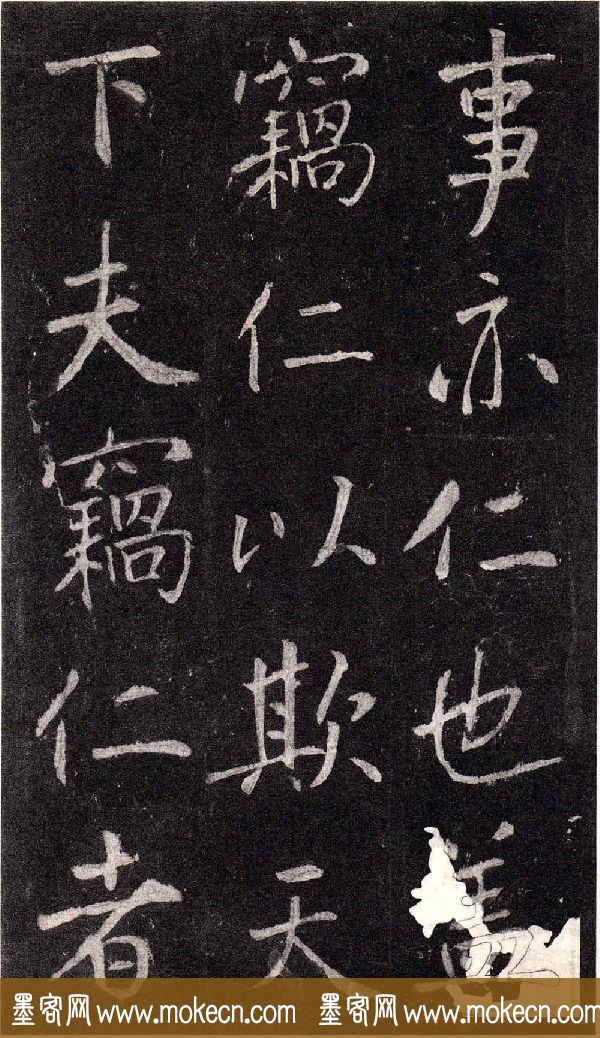 事亦仁也蓋
竊仁以欺天
下夫竊仁者
墨客网 www.mokecn.com 墨客网 www.mokecn.com